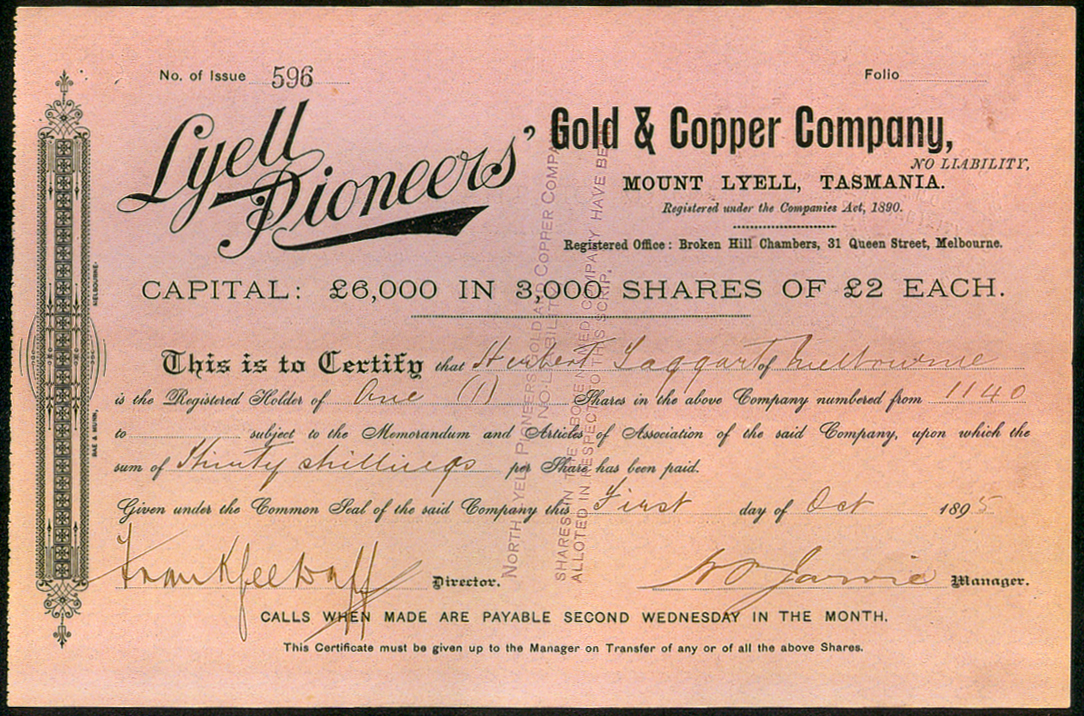 No. of Issue 596
Folio
Lyell Pioneers'
Gold & Copper Company,
NO LIABILITY,
MOUNT LYELL, TASMANIA.
Registered under the Companies Act, 1890.
Registered Office: Broken Hill Chambers, 31 Queen Street, Melbourne.
CAPITAL: £6,000 IN 3,000 SHARES OF £2 EACH.
This is to Certify that Herbert Taggart of Melbourne
is the Registered Holder of One (1) Shares in the above Company numbered from 1140
to subject to the Memorandum and Articles of Association of the said Company, upon which the
sum of Thirty shillings per Share has been paid.
Given under the Common Seal of the said Company this First day of Oct 1895
Director.
W Jarvie Manager.
CALLS WHEN MADE ARE PAYABLE SECOND WEDNESDAY IN THE MONTH.
This Certificate must be given up to the Manager on Transfer of any or of all the above Shares.
NORTH LYELL PIONEERS GOLD AND COPPER COMPA
NO LIABILITY
SHARES IN THE ABOVE COMPANY HAVE BE
ALLOTED IN RESPECT TO THIS SCRIP.
MELBOURNE.